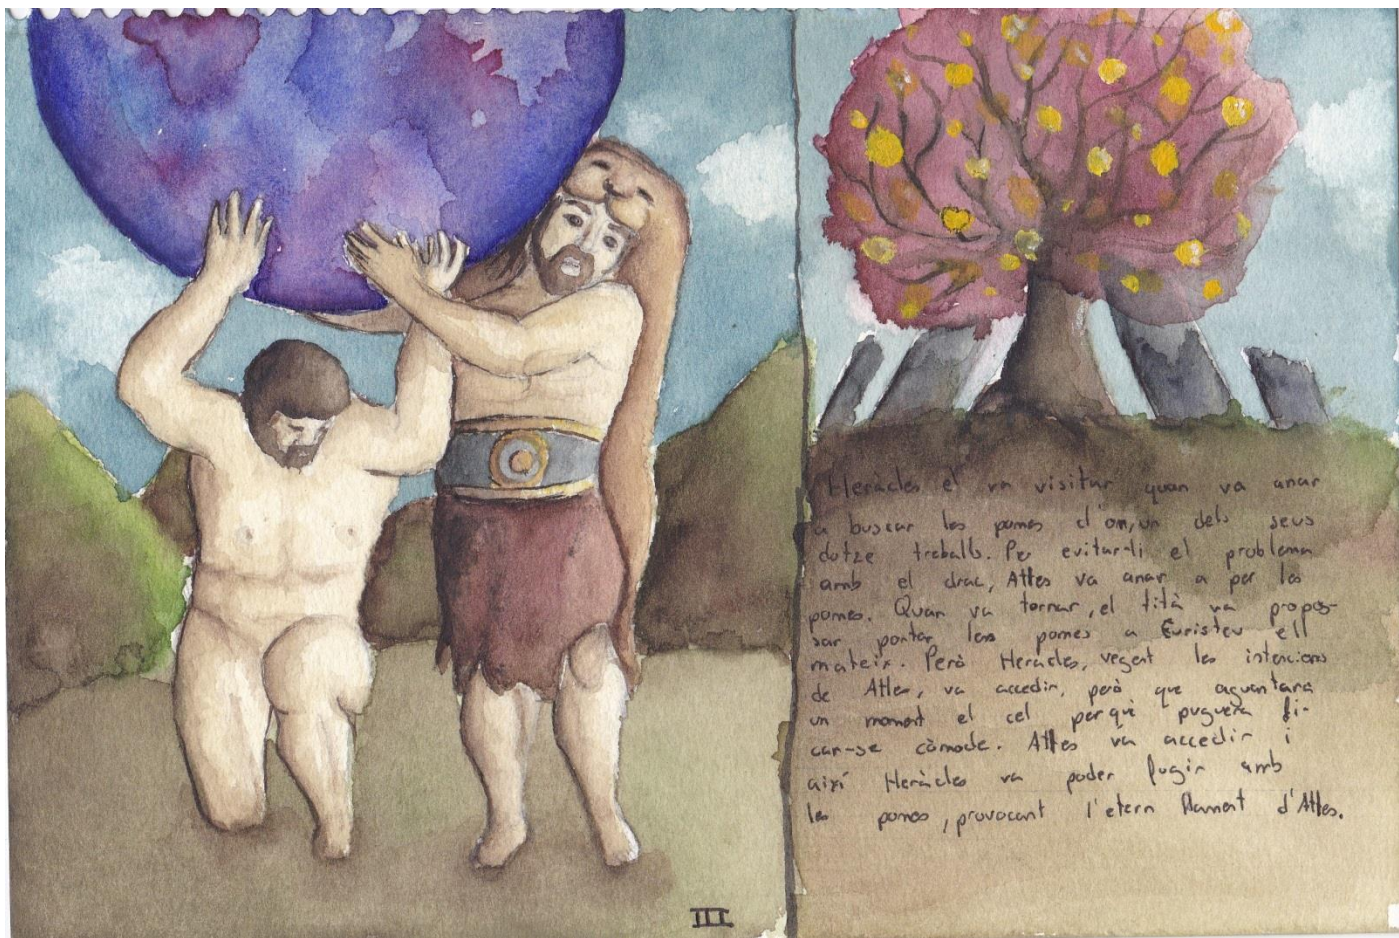 Heracles el va visitar quan va anar
a buscar les pomes d'or, un dels seus
dotze treballs. Per evitar-li el problema
amb el drac, Atles va anar a per les
pomes. Quan va tornar, el tità va propos-
sar portar les pomes a Euristeu ell
mateix. Però Heracles, vegent les intencions
de Atles, va accedir, però que aguantara
un moment el cel perquè puguera fi-
car-se còmode. Atles va accedir i
així Heràcles va poder fugir amb
les pomes, provocant l'etern llament d'Atles.
III